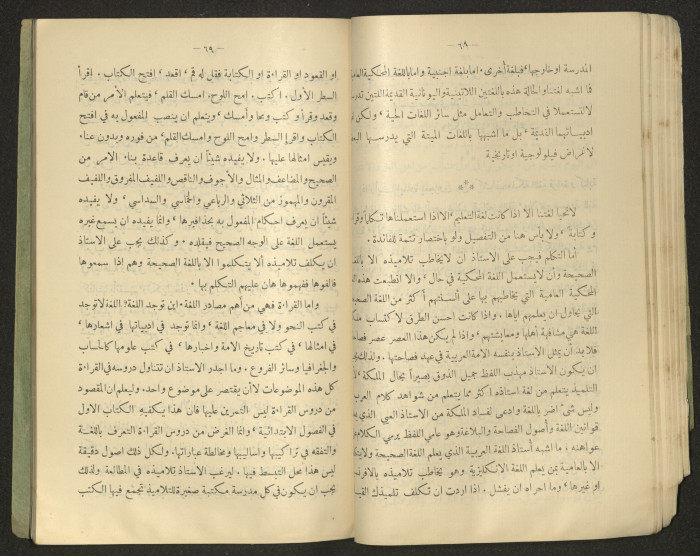 — ٦٨ —
المدرسة او خارجها، فبلغة أخرى. اما بلغة اجنبية واما باللغة المحكية
فما اشبه لغتنا والحالة هذه باللغتين اللاتينية واليونانية القديمة اللتين
لا لتستعملا في التخاطب والتعامل مثل سائر اللغات الحية،
ادبياتها القديمة، بل ما اشبهها باللغات الميتة التي يدرسها
لاغراض فيلولوجية او تاريخية
لا تحيا لغتنا الا اذا كانت لغة التعليم، الا اذا استعملناها تكلماً
وكتابة، ولا بأس هنا من التفصيل ولو باختصار تتمة للفائدة.
أما التكلم فيجب على الاستاذ ان لا يخاطب تلاميذه الا
الصحيحة وأن لا يستعمل اللغة المحكية في حال، والا انطبعت هذه
المحكية العامية التي يخاطبهم بها على ألسنتهم أكثر من اللغة
التي يحاول ان يعلمهم اياها، واذا كانت احسن الطرق لاكتساب
اللغة هي مشافهة أهلها ومعايشتهم، واذا لم يكن هذا العصر عصر
فلا بد أن يمثل الاستاذ بنفسه الامة العربية في عهد فصاحتها.
ان يكون الاستاذ مهذب اللفظ جميل الذوق بصيراً بمجال الملكة
التلميذ يتعلم من لغة استاذه اكثر مما يتعلم من شواهد كلام
وليس شيء اضر باللغة وادعى لفساد الملكة من الاستاذ العيي الذي
قوانين اللغة وأصول الفصاحة والبلاغة وهو عامي اللفظ يرمي الكلام
عواهنه، ما اشبه أستاذ اللغة العربية الذي يعلم اللغة الصحيحة
الا بالعامية بمن يعلم اللغة الانكليزية وهو يخاطب تلاميذه
او غيرها، وما احراه ان يفشل. اذا اردت ان تكلف تلميذك
— ٦٩ —
او القعود او القراءة او الكتابة فقل له قم، اقعد، افتح الكتاب. اقرأ
السطر الأول. اكتب. امح اللوح. امسك القلم، فيتعلم الأمر من قام
وقعد وقرأ وكتب ومحا وأمسك، ويتعلم ان ينصب المفعول به في افتح
الكتاب واقرإ السطر وامح اللوح وامسك القلم، من فوره وبدون عناء.
ويقيس امثالها عليها. ولا يفيده شيئاً ان يعرف قاعدة بناء الامر من
الصحيح والمضاعف والمثال والأجوف والناقص واللفيف المفروق واللفيف
المقرون والمهموز من الثلاثي والرباعي والخماسي والسداسي، ولا يفيده
شيئاً ان يعرف احكام المفعول به بحذافيرها، وانما يفيده ان يسمع غيره
يستعمل اللغة على الوجه الصحيح فيقلده. وكذلك يجب على الاستاذ
ان يكلف تلاميذه ألا يتكلموا الا باللغة الصحيحة وهم اذا سمعوها
فألفوها ففهموها هان عليهم التكلم بها.
واما القراءة فهي من أهم مصادر اللغة. اين توجد اللغة؟ اللغة لا توجد
في كتب النحو ولا في معاجم اللغة، وانما توجد في ادبياتها في اشعارها،
في امثالها، في كتب تاريخ الامة واخبارها، في كتب علومها كالحساب
والجغرافيا وسائر الفروع. وما اجدر الاستاذ ان تتناول دروسه في القراءة
كل هذه الموضوعات لا أن يقتصر على موضوع واحد. وليعلم ان المقصود
من دروس القراءة ليس التمرين عليها فان هذا يكفيه الكتاب الأول
في الفصول الابتدائية، وانما الغرض من دروس القراءة التعرف باللغة
والتفقه في تراكيبها واساليبها ومخالطة عباراتها. ولكل ذلك اصول دقيقة
ليس هذا محل التبسط فيها. ليرغب الاستاذ تلاميذه في المطالعة ولذلك
يجب ان يكون في كل مدرسة مكتبة صغيرة للتلاميذ تجمع فيها الكتب